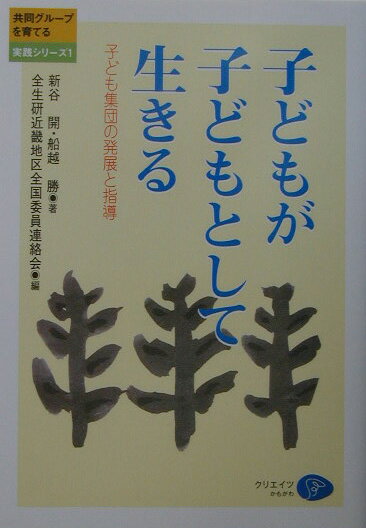 共同グループ
を育てる
実践シリーズ1
子どもが
子どもとして
生きる
子ども集団の発展と指導
新谷 開・船越 勝●著
全生研近畿地区全国委員連絡会●編
クリエイツ
かもがわ